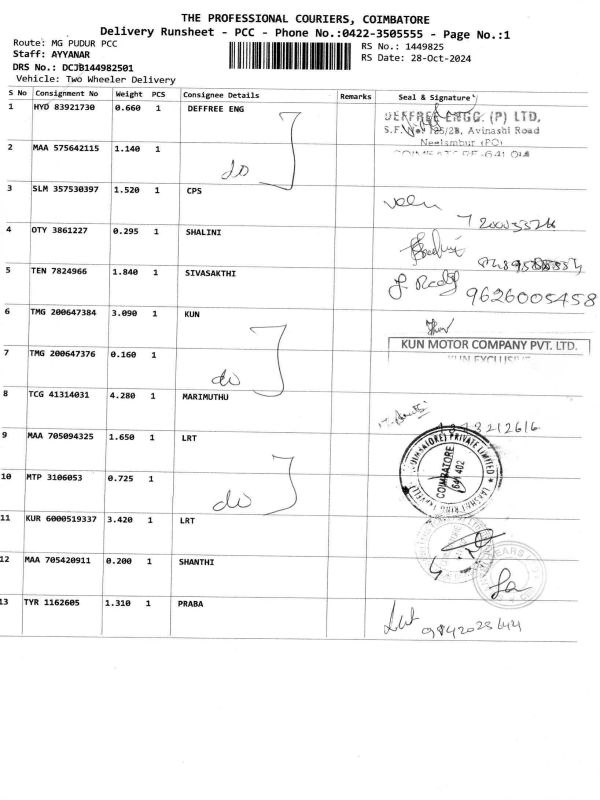 THE PROFESSIONAL COURIERS, COIMBATORE
Delivery Runsheet - PCC - Phone No.:0422-3505555 - Page No.:1
Route: MG PUDUR PCC RS No.: 1449825
Staff: AYYANAR RS Date: 28-Oct-2024
DRS No.: DCJB144982501
Vehicle: Two Wheeler Delivery
S No Consignment No Weight PCS Consignee Details Remarks Seal & Signature
1 HYD 83921730 0.660 1 DEFFREE ENG
DEFFREE ENGG. (P) LTD,
Avinashi Road
Neelambur (PO)
2 MAA 575642115 1.140 1 do
3 SLM 357530397 1.520 1 CPS
4 OTY 3861227 0.295 1 SHALINI
5 TEN 7824966 1.840 1 SIVASAKTHI
9626005458
6 TMG 200647384 3.090 1 KUN
KUN MOTOR COMPANY PVT. LTD.
KUN EXCLUSIVE
7 TMG 200647376 0.160 1 do
8 TCG 41314031 4.280 1 MARIMUTHU
9 MAA 705094325 1.650 1 LRT
(COIMBATORE) PRIVATE LIMITED
COIMBATORE
641 402
10 MTP 3106053 0.725 1 do
11 KUR 6000519337 3.420 1 LRT
12 MAA 705420911 0.200 1 SHANTHI
13 TYR 1162605 1.310 1 PRABA